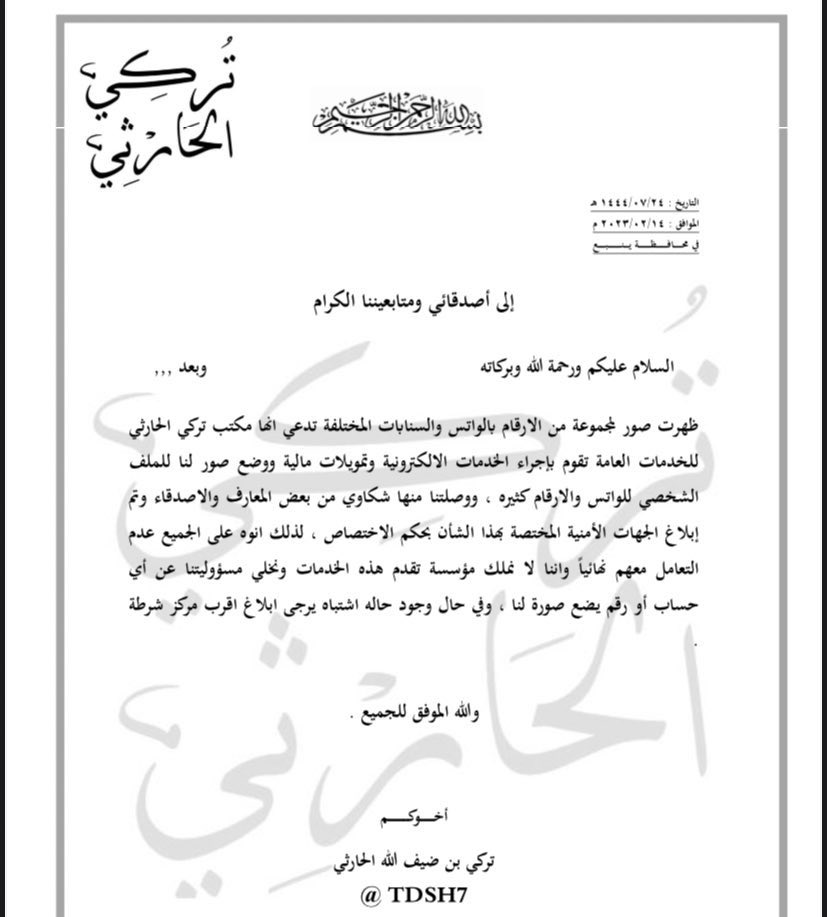 تُركي
الحَارثي
بسم الله الرحمن الرحيم
التاريخ : ١٤٤٤/٠٧/٢٤ هـ
الموافق : ٢٠٢٣/٠٢/١٤ م
في محافـظـة ينـبـع
إلى أصدقائي ومتابعيننا الكرام
السلام عليكم ورحمة الله وبركاته وبعد ,,,
ظهرت صور لمجموعة من الارقام بالواتس والسنابات المختلفة تدعي انها مكتب تركي الحارثي
للخدمات العامة تقوم بإجراء الخدمات الالكترونية وتمويلات مالية ووضع صور لنا للملف
الشخصي للواتس والارقام كثيره ، ووصلتنا منها شكاوي من بعض المعارف والاصدقاء وتم
إبلاغ الجهات الأمنية المختصة بهذا الشأن بحكم الاختصاص ، لذلك انوه على الجميع عدم
التعامل معهم نهائياً واننا لا نملك مؤسسة تقدم هذه الخدمات ونخلي مسؤوليتنا عن أي
حساب أو رقم يضع صورة لنا ، وفي حال وجود حاله اشتباه يرجى ابلاغ اقرب مركز شرطة
.
والله الموفق للجميع .
أخـــوكــــم
تركي بن ضيف الله الحارثي
@ TDSH7
تُركي
الحَارثي